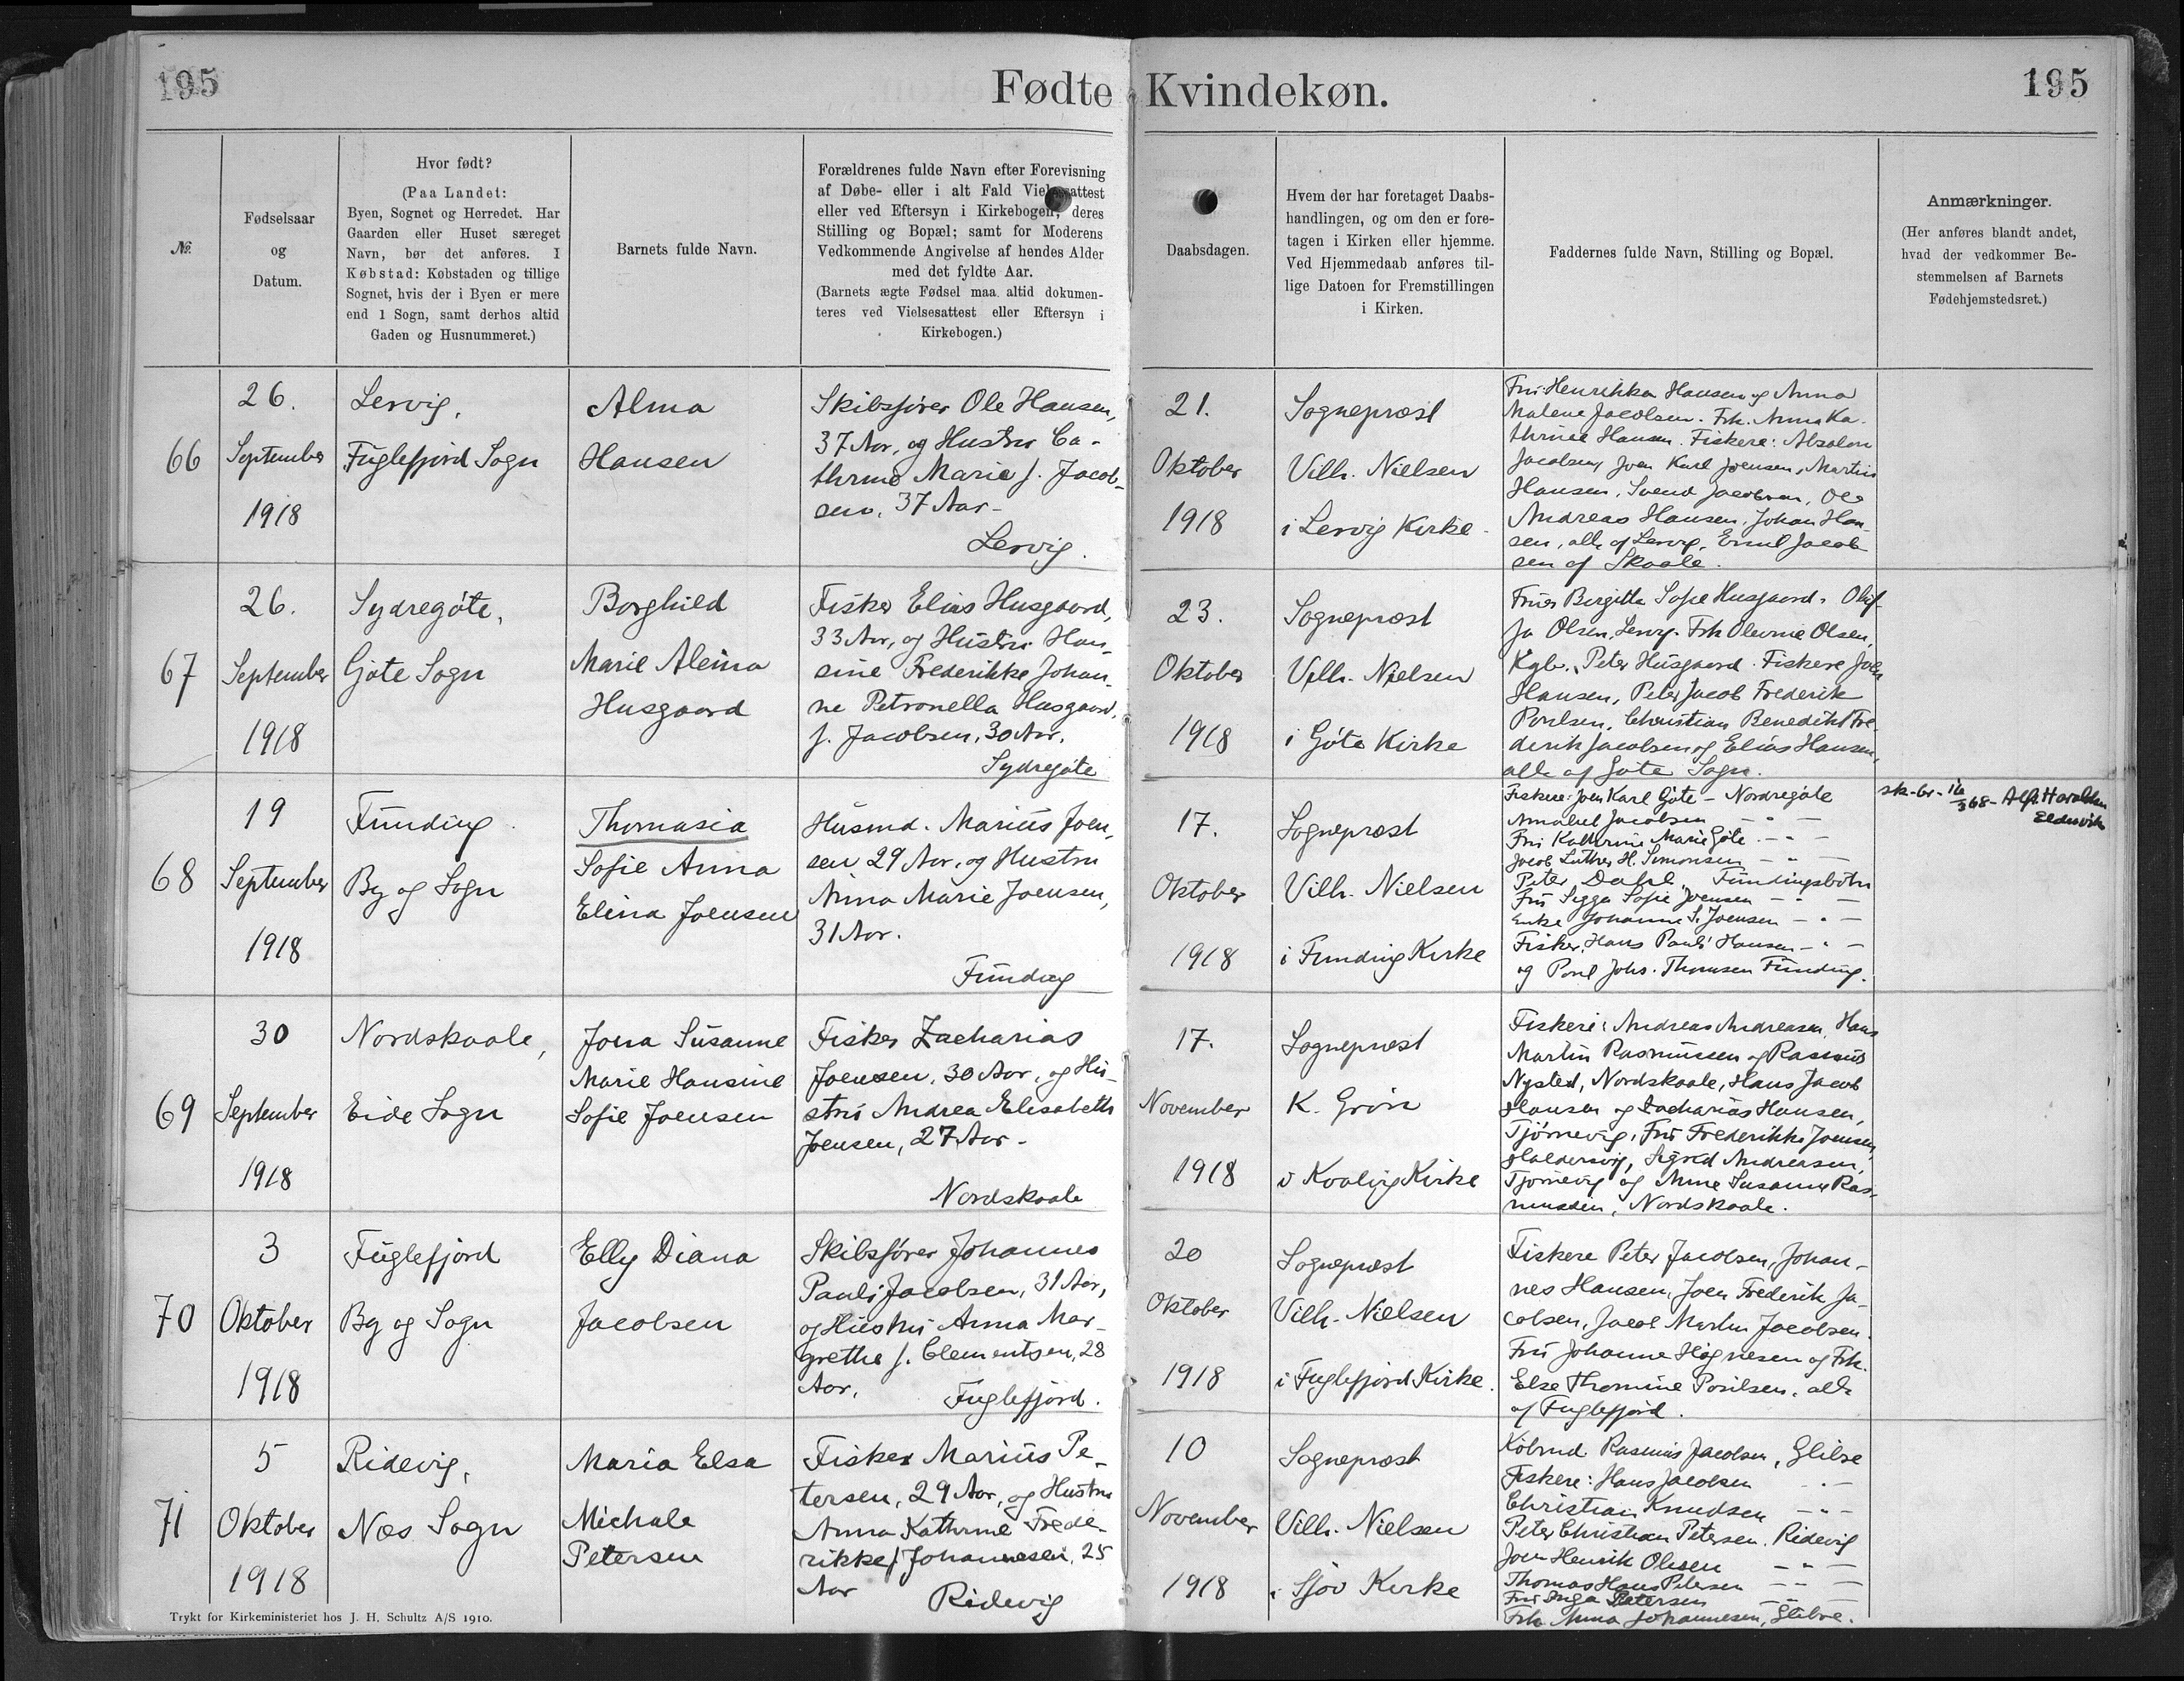 195
Fødte Kvindekøn.
195
№
Fødselsaar
og
Datum.
Hvor født?
(Paa Landet:
Byen, Sognet og Herredet. Har
Gaarden eller Huset særeget
Navn, bør det anføres. I
Købstad: Købstaden og tillige
Sognet, hvis der i Byen er mere
end 1 Sogn, samt derhos altid
Gaden og Husnummeret.)
Barnets fulde Navn.
Forældrenes fulde Navn efter Forevisning
af Døbe- eller i alt Fald Vielsesattest
eller ved Eftersyn i Kirkebogen; deres
Stilling og Bopæl; samt for Moderens
Vedkommende Angivelse af hendes Alder
med det fyldte Aar.
(Barnets ægte Fødsel maa altid dokumen-
teres ved Vielsesattest eller Eftersyn i
Kirkebogen.)
Daabsdagen.
Hvem der har foretaget Daabs-
handlingen, og om den er fore-
tagen i Kirken eller hjemme.
Ved Hjemmedaab anføres til-
lige Datoen for Fremstillingen
i Kirken.
Faddernes fulde Navn, Stilling og Bopæl.
Anmærkninger.
(Her anføres blandt andet,
hvad der vedkommer Be-
stemmelsen af Barnets
Fødehjemstedsret.)
66
26.
September
1918
Lervig,
Fuglefjord Sogn
Alma
Hansen
Skibsfører Ole Hansen,
37 Aar, og Hustru Ca-
thrine Marie f. Jacob-
sen, 37 Aar-
Lervig.
21.
Oktober
1918
Sognepræst
Vilh. Nielsen
i Lervig Kirke
Fru Henrikka Hansen og Anna
Malene Jacobsen. Frk. Anna Ka-
thrine Hansen. Fiskere: Absalon
Jacobsen, Joen Karl Joensen, Martin
Hansen, Svend Jacobsen, Ole
Andreas Hansen, Johan Han-
sen, alle af Lervig, Emil Jacob-
sen af Skaale.
67
26.
September
1918
Sydregøte,
Gøte Sogn
Borghild
Marie Aleina
Husgaard
Fisker Elias Husgaard,
33 Aar, og Hustru Han-
sine Frederikke Johan-
ne Petronella Husgaard,
f. Jacobsen, 30 Aar,
Sydregøte
23.
Oktober
1918
Sognepræst
Vilh. Nielsen
i Gøte Kirke
Fruer Birgitte Sofie Husgaard, Olif-
ja Olsen, Lervig. Frk Olevine Olsen,
Kgb., Peter Husgaard. Fiskere Joen
Hansen, Peter Jacob Frederik
Poulsen, Christian Benedikt Fre-
derik Jacobsen og Elias Hansen,
alle af Gøte Sogn.
68
19
September
1918
Funding
By og Sogn
Thomasia
Sofie Anna
Elina Joensen
Husmd. Marius Joen-
sen 29 Aar, og Hustru
Anna Marie Joensen,
31 Aar.
Funding
17.
Oktober
1918
Sognepræst
Vilh. Nielsen
i Funding Kirke
Fiskere: Joen Karl Gøte - Nordregøte
Jacobsen - " -
Fru Kathrine Marie Gøte - " -
Jacob Luther H. Simonsen - " -
Peter Dahl Fundingsbotn
Fru Sigga Sofie Joensen - " -
Enke Johanne S. Joensen - " -
Fisker Hans Pauli Hansen - " -
og Poul Johs. Thomsen Funding.
sk-br-16/368- Alfr. Haraldsen
Eldevik
69
30
September
1918
Nordskaale,
Eide Sogn
Jona Susanne
Marie Hansine
Sofie Joensen
Fisker Zacharias
Joensen, 30 Aar, og Hu-
stru Andrea Elisabeth
Joensen, 27 Aar-
Nordskaale
17.
November
1918
Sognepræst
K. Grön
i Kvalvig Kirke
Fiskere: Andreas Andreasen, Hans
Martin Rasmussen og Rasmus
Nysted, Nordskaale, Hans Jacob
Hansen og Zacharias Hansen,
Tjørnevig, Fru Frederikke Joensen
Haldersvig, Sigrid Andreasen,
Tjørnevig og Anne Susanne Ras-
mussen, Nordskaale.
70
3
Oktober
1918
Fuglefjord
By og Sogn
Elly Diana
Jacobsen
Skibsfører Johannes
Pauli Jacobsen, 31 Aar,
og Hustru Anna Mar-
grethe f. Clementsen, 28
Aar,
Fuglefjord.
20
Oktober
1918
Sognepræst
Vilh. Nielsen
i Fuglefjord Kirke.
Fiskere Peter Jacobsen, Johan-
nes Hansen, Joen Frederik Ja-
cobsen, Jacob Martin Jacobsen.
Fru Johanne Høgnesen og Frk.
Else Thomine Poulsen, alle
af Fuglefjord.
71
5
Oktober
1918
Ridevig,
Næs Sogn
Maria Elsa
Michale
Petersen
Fisker Marius Pe-
tersen, 29 Aar, og Hustru
Anna Kathrine Frede-
rikke f Johannesen, 25
Aar
Ridevig
10
November
1918
Sognepræst
Vilh. Nielsen
i Sjov Kirke
Købmd Rasmus Jacobsen, Glibre
Fiskere: Hans Jacobsen - " -
Christian Knudsen - " -
Peter Christian Petersen. Ridevig
Joen Henrik Olesen - " -
Thomas Hans Petersen - " -
Fru Inga Petersen - " -
Frk Anna Johannesen, Glibre.
Trykt for Kirkeministeriet hos J. H. Schultz A/S 1910.